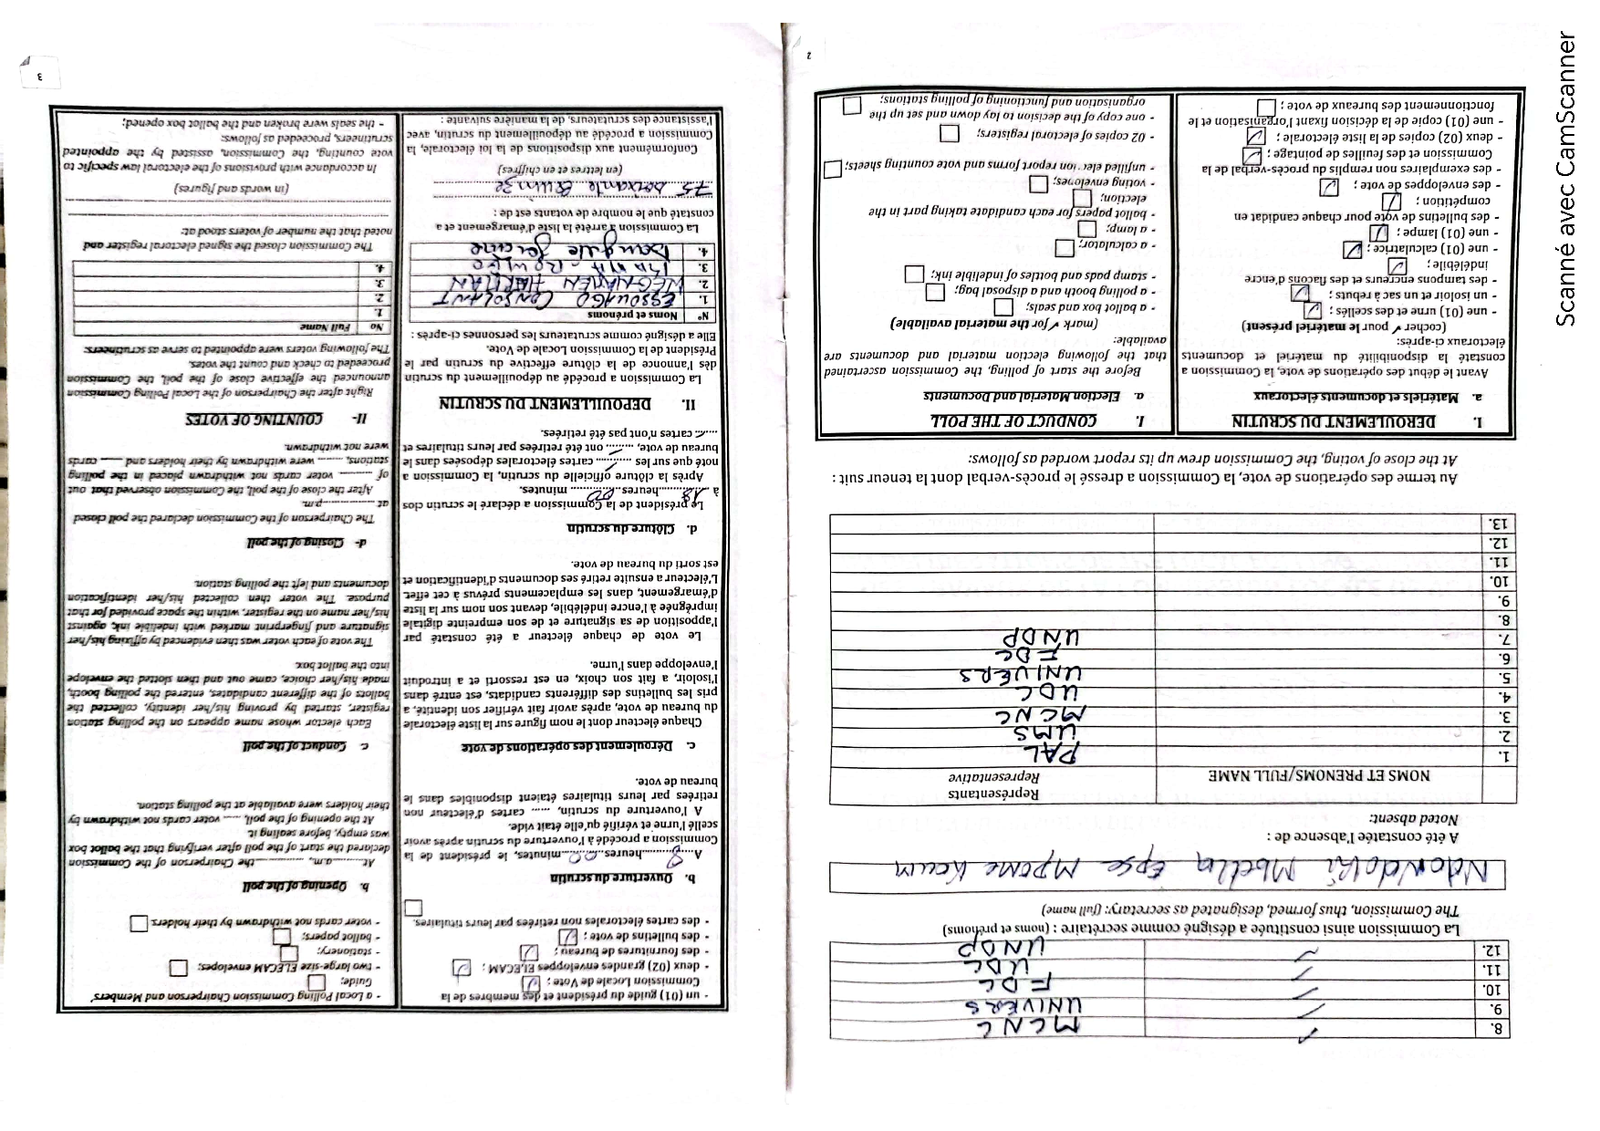 2
8. MCNC
9. UNIVERS
10. FDC
11. UDC
12. UNDP
La Commission ainsi constituée a désigné comme secrétaire : (noms et prénoms)
The Commission, thus formed, designated as secretary: (full name)
NdoNdoKi Mbella Epse Mpome Kaum
A été constatée l'absence de :
Noted absent:
NOMS ET PRENOMS/FULL NAME
Représentants
Representative
1. PAL
2. UMS
3. MCNC
4. UDC
5. UNIVERS
6. FDC
7. UNDP
8.
9.
10.
11.
12.
13.
Au terme des opérations de vote, la Commission a dressé le procès-verbal dont la teneur suit :
At the close of voting, the Commission drew up its report worded as follows:
I. DEROULEMENT DU SCRUTIN
a. Matériels et documents électoraux
Avant le début des opérations de vote, la Commission a
constaté la disponibilité du matériel et documents
électoraux ci-après:
(cocher ✓ pour le matériel présent)
- une (01) urne et des scellés ;
- un isoloir et un sac à rebuts ;
- des tampons encreurs et des flacons d'encre
indélébile ;
- une (01) calculatrice ;
- une (01) lampe ;
- des bulletins de vote pour chaque candidat en
compétition ;
- des enveloppes de vote ;
- des exemplaires non remplis du procès-verbal de la
Commission et des feuilles de pointage ;
- deux (02) copies de la liste électorale ;
- une (01) copie de la décision fixant l'organisation et le
fonctionnement des bureaux de vote ;
I. CONDUCT OF THE POLL
a. Election Material and Documents
Before the start of polling, the Commission ascertained
that the following election material and documents are
available:
(mark ✓ for the material available)
- a ballot box and seals;
- a polling booth and a disposal bag;
- stamp pads and bottles of indelible ink;
- a calculator;
- a lamp;
- ballot papers for each candidate taking part in the
election;
- voting envelopes;
- unfilled election report forms and vote counting sheets;
- 02 copies of electoral registers;
- one copy of the decision to lay down and set up the
organisation and functioning of polling stations;
3
- un (01) guide du président et des membres de la
Commission Locale de Vote ;
- deux (02) grandes enveloppes ELECAM ;
- des fournitures de bureau ;
- des bulletins de vote ;
- des cartes électorales non retirées par leurs titulaires.
b. Ouverture du scrutin
A 8 heures 00 minutes, le président de la
Commission a procédé à l'ouverture du scrutin après avoir
scellé l'urne et vérifié qu'elle était vide.
A l'ouverture du scrutin, ...... cartes d'électeur non
retirées par leurs titulaires étaient disponibles dans le
bureau de vote.
c. Déroulement des opérations de vote
Chaque électeur dont le nom figure sur la liste électorale
du bureau de vote, après avoir fait vérifier son identité, a
pris les bulletins des différents candidats, est entré dans
l'isoloir, a fait son choix, en est ressorti et a introduit
l'enveloppe dans l'urne.
Le vote de chaque électeur a été constaté par
l'apposition de sa signature et de son empreinte digitale
imprégnée à l'encre indélébile, devant son nom sur la liste
d'émargement, dans les emplacements prévus à cet effet.
L'électeur a ensuite retiré ses documents d'identification et
est sorti du bureau de vote.
d. Clôture du scrutin
Le président de la Commission a déclaré le scrutin clos
à 18 heures 00 minutes.
Après la clôture officielle du scrutin, la Commission a
noté que sur les ........ cartes électorales déposées dans le
bureau de vote, ........ ont été retirées par leurs titulaires et
........ cartes n'ont pas été retirées.
II. DEPOUILLEMENT DU SCRUTIN
La Commission a procédé au dépouillement du scrutin
dès l'annonce de la clôture effective du scrutin par le
Président de la Commission Locale de Vote.
Elle a désigné comme scrutateurs les personnes ci-après :
N° Noms et prénoms
1. ESSOUNGO CONSOLANT
2. HARMAN
3.
4.
La Commission a arrêté la liste d'émargement et a
constaté que le nombre de votants est de :
75 soixante Quinze
(en lettres et en chiffres)
Conformément aux dispositions de la loi électorale, la
Commission a procédé au dépouillement du scrutin, avec
l'assistance des scrutateurs, de la manière suivante :
- a Local Polling Commission Chairperson and Members'
Guide;
- two large-size ELECAM envelopes;
- stationery;
- ballot papers;
- voter cards not withdrawn by their holders.
b. Opening of the poll
At ........a.m., ............ the Chairperson of the Commission
declared the start of the poll after verifying that the ballot box
was empty, before sealing it.
At the opening of the poll, ...... voter cards not withdrawn by
their holders were available at the polling station.
c. Conduct of the poll
Each elector whose name appears on the polling station
register, started by proving his/her identity, collected the
ballots of the different candidates, entered the polling booth,
made his/her choice, came out and then slotted the envelope
into the ballot box.
The vote of each voter was then evidenced by affixing his/her
signature and fingerprint marked with indelible ink, against
his/her name on the register, within the space provided for that
purpose. The voter then collected his/her identification
documents and left the polling station.
d- Closing of the poll
The Chairperson of the Commission declared the poll closed
at ................ p.m.
After the close of the poll, the Commission observed that out
of ........ voter cards not withdrawn placed in the polling
stations, ........ were withdrawn by their holders and ...... cards
were not withdrawn.
II- COUNTING OF VOTES
Right after the Chairperson of the Local Polling Commission
announced the effective close of the poll, the Commission
proceeded to check and count the votes.
The following voters were appointed to serve as scrutineers:
No Full Name
1.
2.
3.
4.
The Commission closed the signed electoral register and
noted that the number of voters stood at:
(in words and figures)
In accordance with provisions of the electoral law specific to
vote counting, the Commission, assisted by the appointed
scrutineers, proceeded as follows:
- the seals were broken and the ballot box opened;
Scanné avec CamScanner